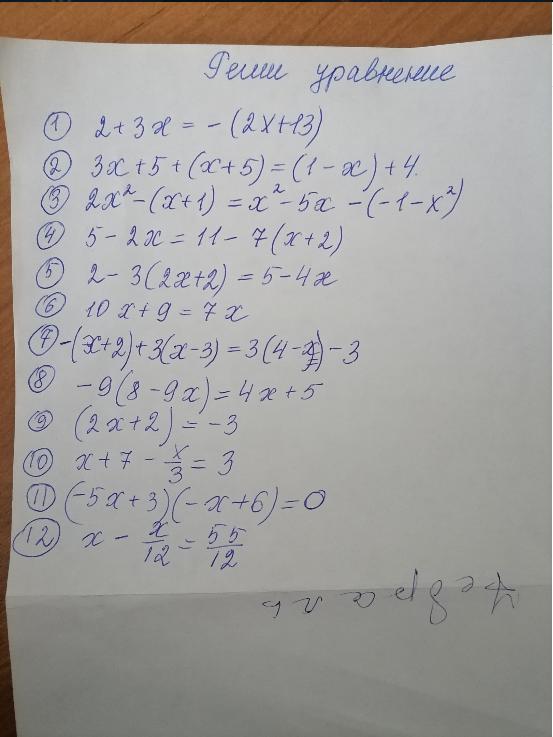 Реши уравнение
① 2 + 3x = - (2x+13)
② 3x + 5 + (x + 5) = (1 - x) + 4.
③ 2x² - (x+1) = x² - 5x - (-1 - x²)
④ 5 - 2x = 11 - 7(x + 2)
⑤ 2 - 3(2x+2) = 5 - 4x
⑥ 10x + 9 = 7x
⑦ -(x+2) + 3(x-3) = 3(4-x) - 3
⑧ -9(8 - 9x) = 4x + 5
⑨ (2x + 2) = -3
⑩ x + 7 - x/3 = 3
⑪ (-5x + 3)(-x + 6) = 0
⑫ x - x/12 = 55/12
Февраль